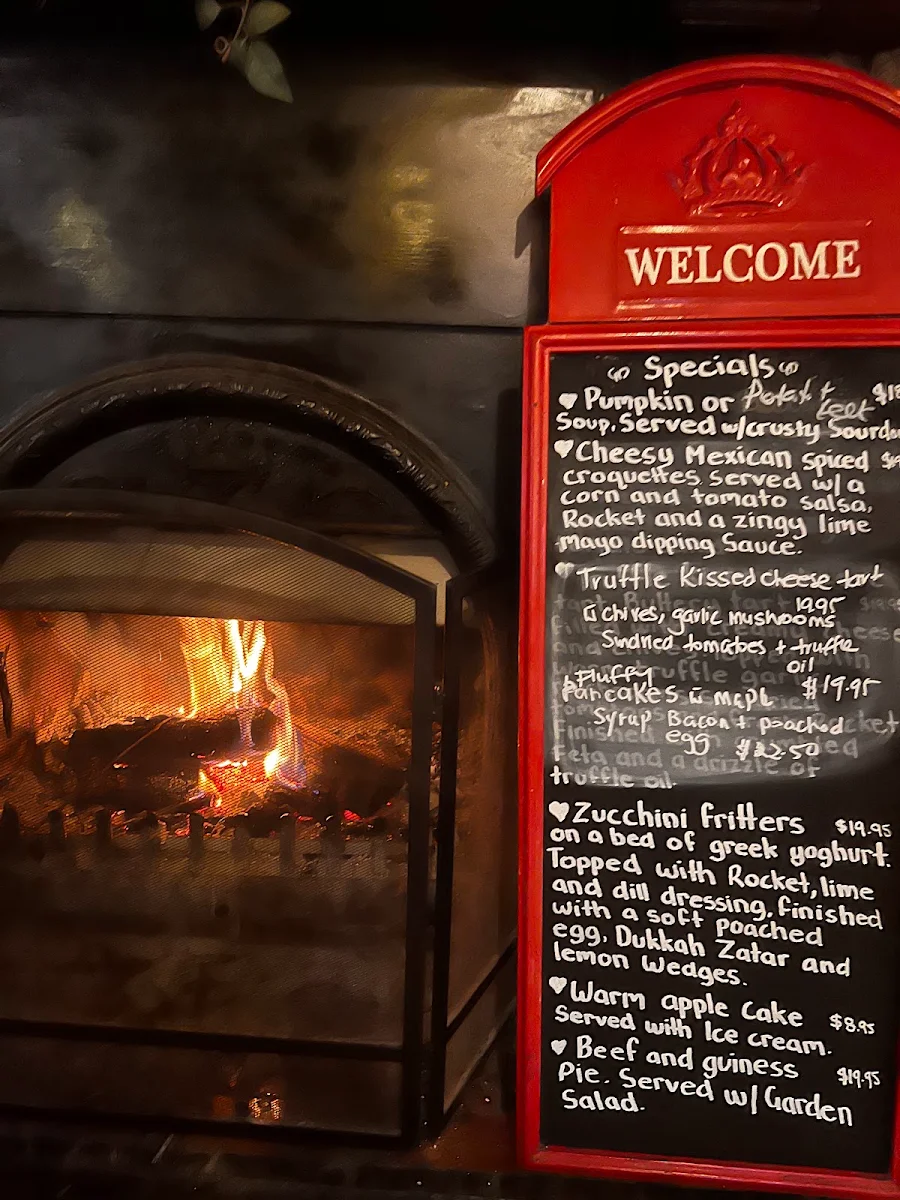 WELCOME
Specials
Pumpkin or Potato +
Leek
Soup. Served w/crusty
Cheesy Mexican spiced
croquettes served w/ a
corn and tomato salsa,
Rocket and a zingy lime
mayo dipping Sauce.
Truffle Kissed cheese tart
19.95
c̄ chives, garlic mushooms
Sundried tomatoes + truffle
oil
Fluffy $19.95
Pancakes c̄ mapl
Syrup Bacon + poached
egg $22.50
Finished
feta and a drizzle of
truffle oil.
Zucchini fritters $19.95
on a bed of greek yoghurt.
Topped with Rocket, lime
and dill dressing, finished
with a soft poached
egg, Dukkah Zatar and
lemon Wedges.
Warm apple Cake $8.95
Served with Ice cream.
Beef and guiness $19.95
Pie. Served w/ Garden
Salad.